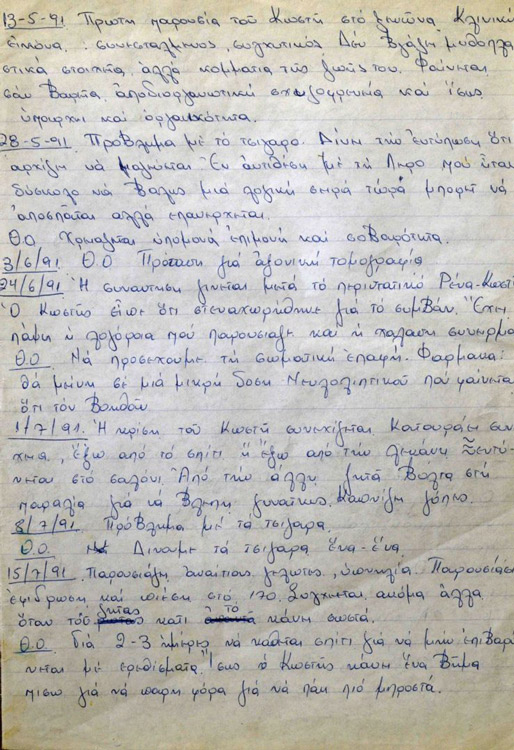 13-5-91 Πρώτη παρουσία τοῦ Κωστῆ στό ξενῶνα Κλινική
εἰκόνα: συνεσταλμένος, συγχυτικός Δέν βγάζη μυθοπλα
στικά στοιχεῖα, ἀλλά κομμάτια τῆς ζωῆς του. Φαίνεται
σάν βαρειά ἀποδιοργανωτική σχιζοφρένια καί ἴσως
ὑπάρχη καί ὀργανικότητα.
28-5-91. Πρόβλημα μέ τό τσιγάρο. Δίνη τήν ἐντύπωση ὅτι
ἀρχίζη νά μαζεύεται. Ἐν ἀντιθέση μέ τή Λέρο πού ἦταν
δύσκολο νά βάλης μιά λογική σειρά τώρα μπορεῖ νά
ἀποσπᾶται ἀλλά ἐπανέρχεται.
Θ.Ο. Χρειάζεται ὑπομονή ἐπιμονή καί σοβαρότητα.
3/6/91. Θ.Ο Πρόταση γιά ἀξονική τομογραφία
24/6/91 Ἡ συνάντηση γίνεται μετά τό περιστατικό Ρένα-Κωστῆ
Ὁ Κωστῆς εἶπε ὅτι στεναχωρήθηκε γιά τό συμβάν. Ἔχει
πάψη ἡ λογόρροια πού παρουσίαζε καί ἡ χάλαση συνειρμῶ
Θ.Ο Νά προσέχουμε τή σωματική ἐπαφή. Φάρμακα:
θά μείνη σέ μιά μικρή δόση Νευροληπτικοῦ πού φαίνεται
ὅτι τόν βοηθάη
1/7/91. Ἡ κρίση τοῦ Κωστῆ συνεχίζεται Κατουράει συ
χνά, ἔξω ἀπό τό σπίτι ἤ ἔξω ἀπό τήν λεκάνη ξεντύ
νεται στό σαλόνι. Ἀπό τήν ἄλλη ζητᾶ βόλτα στή
παραλία γιά νά βλέπη γυναῖκες. Καπνίζη
8/7/91 Πρόβλημα μέ τά τσιγάρα.
Θ.Ο. Δίνουμε τά τσιγάρα ἕνα-ἕνα.
15/7/91 Παρουσιάζη ἀναίτιους γέλωτες, ὑπνηλία. Παρουσίασε
ἐφίδρωση καί πίεση στό 170. Συγχύζεται ἀκόμα ἀλλά
ὅταν τοῦ ζητᾶς κάτι τό κάνη σωστά.
Θ.Ο. διά 2-3 ἡμέρες νά κάθεται σπίτι γιά νά μήν ἐπιβαρύ
νεται μέ ἐρεθίσματα. Ἴσως ὁ Κωστῆς κάνη ἕνα βῆμα
πίσω γιά νά πάρη φόρα γιά νά πάη πιό μπροστά.